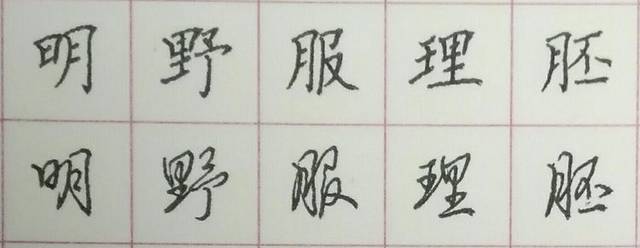 明野服理胚
明野服理胚